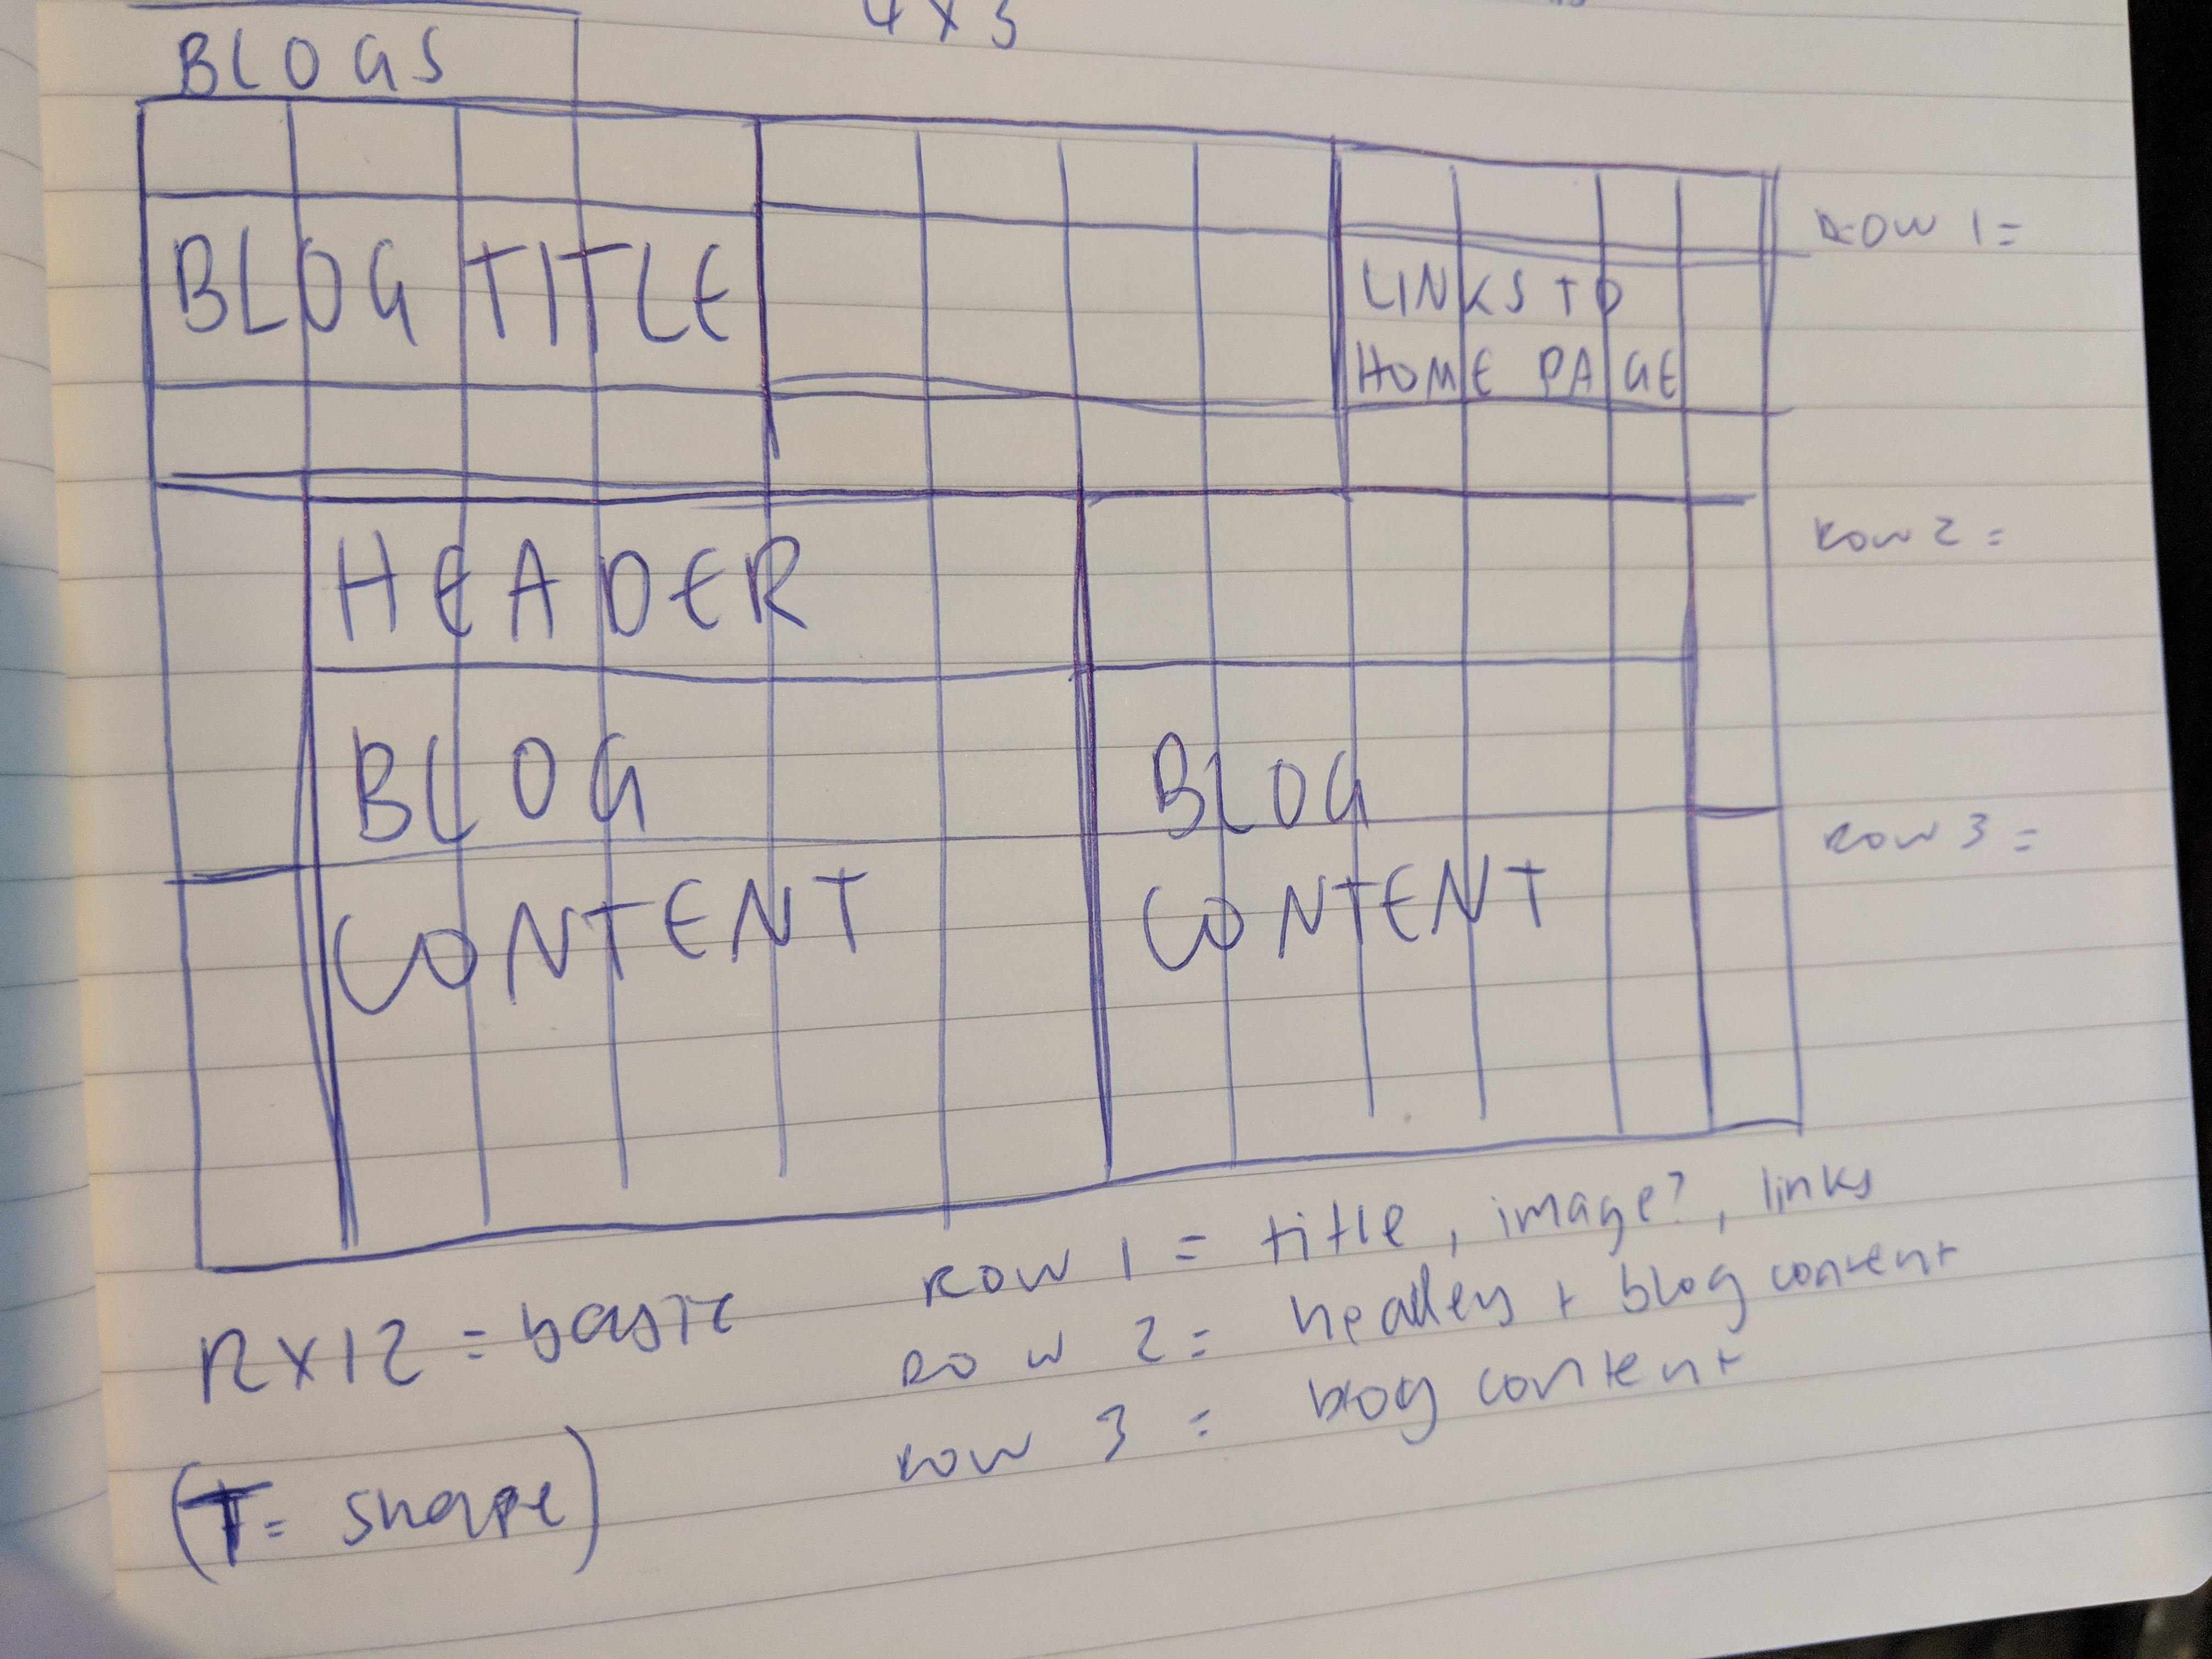 4 X 3
BLOGS
BLOG TITLE
LINKS TO
HOME PAGE
ROW 1 =
HEADER
ROW 2 =
BLOG
CONTENT
BLOG
CONTENT
ROW 3 =
ROW 1 = title, image?, links
ROW 2 = headers + blog content
ROW 3 = blog content
12X12 = basic
(T = shape)